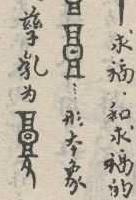 求福·和求福的
…形本象
孳乳为